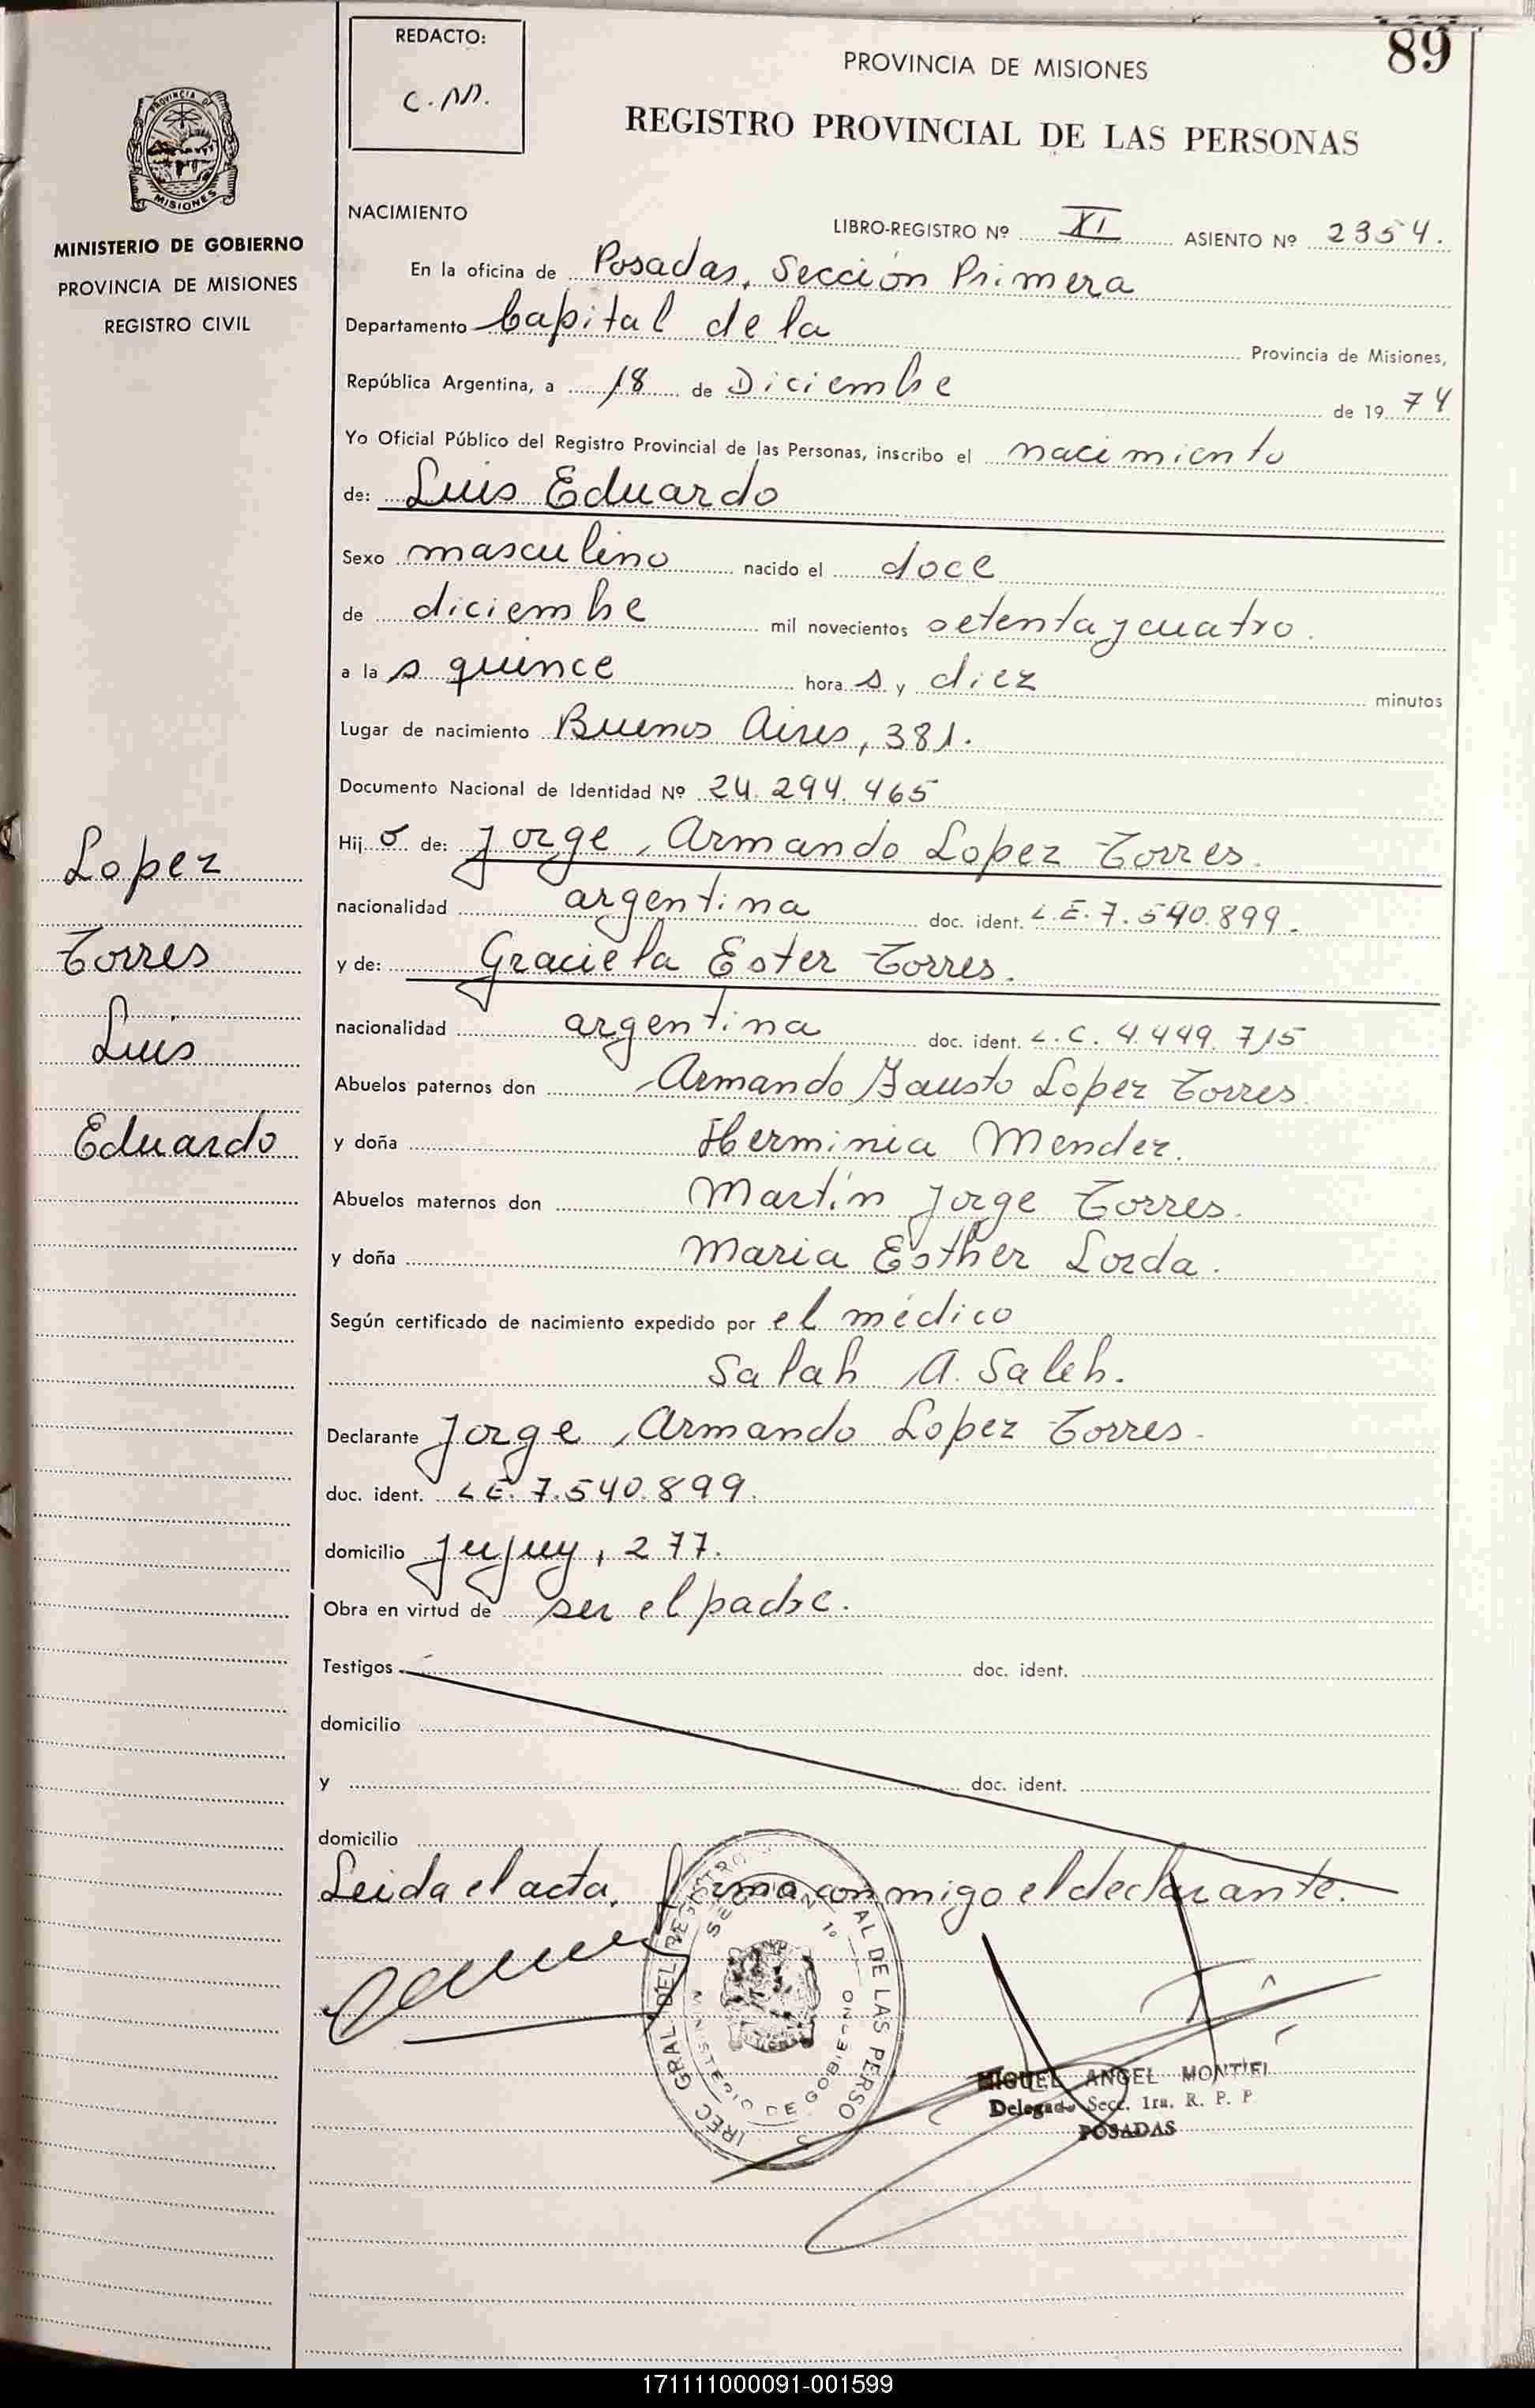 REDACTO:
C.M.
PROVINCIA DE MISIONES
89
REGISTRO PROVINCIAL DE LAS PERSONAS
PROVINCIA DE
MISIONES
MINISTERIO DE GOBIERNO
PROVINCIA DE MISIONES
REGISTRO CIVIL
NACIMIENTO
LIBRO-REGISTRO Nº XI ASIENTO Nº 2354.
En la oficina de Posadas, Sección Primera
Departamento Capital de la Provincia de Misiones,
República Argentina, a 18 de Diciembre de 19 74
Yo Oficial Público del Registro Provincial de las Personas, inscribo el nacimiento
de: Luis Eduardo
Sexo masculino nacido el doce
de diciembre mil novecientos setenta y cuatro.
a la s quince hora s y diez minutos
Lugar de nacimiento Buenos Aires, 381.
Documento Nacional de Identidad Nº 24.294.465
Hij o de: Jorge Armando Lopez Torres.
nacionalidad argentina doc. ident. L.E. 7.540.899.
y de: Graciela Ester Torres.
nacionalidad argentina doc. ident. L.C. 4.449.715
Abuelos paternos don Armando Fausto Lopez Torres
y doña Herminia Mendez.
Abuelos maternos don Martín Jorge Torres.
y doña Maria Esther Lorda.
Según certificado de nacimiento expedido por el médico
Salah A. Saleh.
Declarante Jorge Armando Lopez Torres.
doc. ident. L.E. 7.540.899.
domicilio Jujuy, 277.
Obra en virtud de ser el padre.
Testigos doc. ident.
domicilio
y doc. ident.
domicilio
Leida el acta, firma conmigo el declarante.
Lopez
Torres
Luis
Eduardo
MINISTERIO DE GOBIERNO
MIGUEL ANGEL MONTIEL
Delegado Secc. 1ra. R. P. P.
POSADAS
171111000091-001599